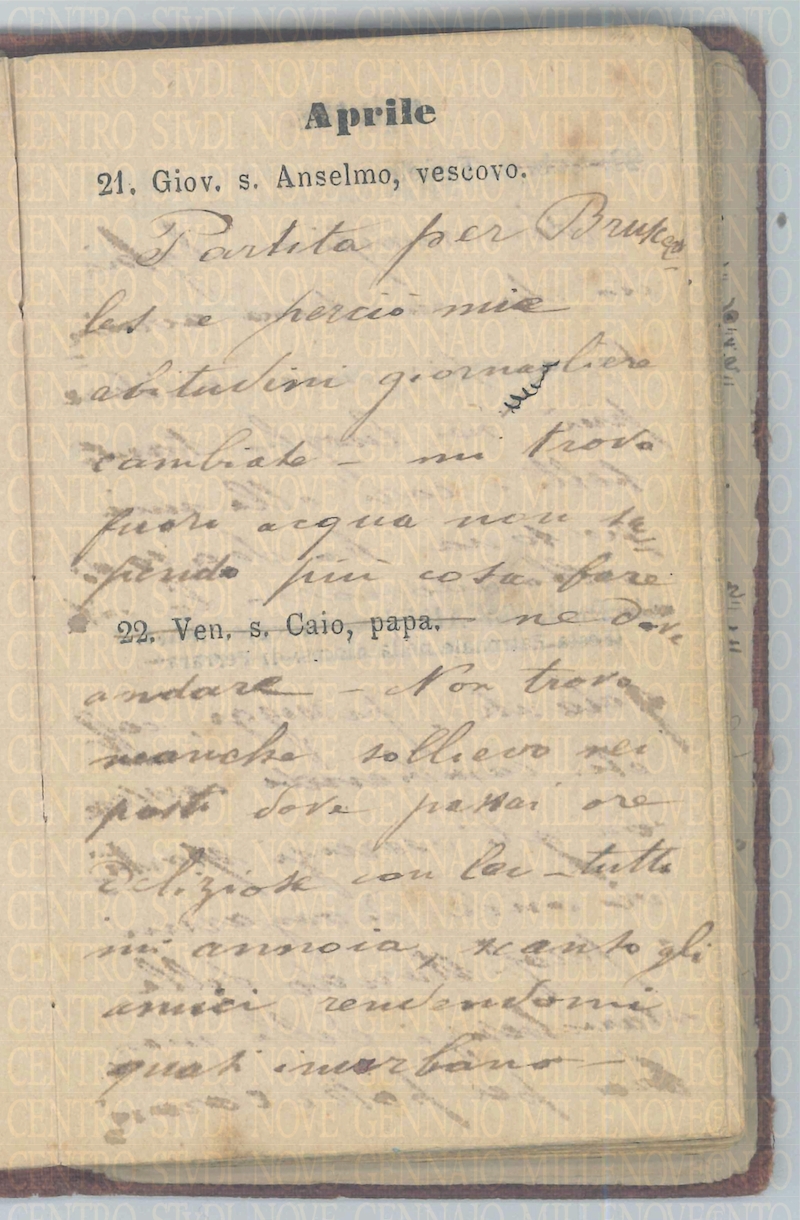 Aprile
21. Giov. s. Anselmo, vescovo.
Partita per Bruxel
les e perciò mie
abitudini giornagliere
cambiate – mi trovo
fuori acqua non sa
pendo più cosa fare
22. Ven. s. Caio, papa. ne dove
andare – Non trovo
neanche sollievo nei
posti dove passai ore
deliziose con lei – tutto
mi annoia, scanto gli
amici rendendomi
quasi inurbano –